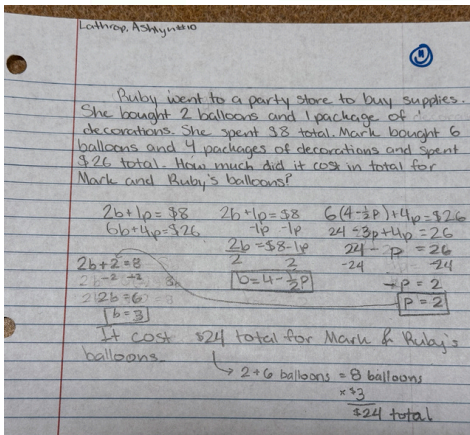 Lathrop, Ashlyn
Ruby went to a party store to buy supplies.
She bought 2 balloons and 1 package of
decorations. She spent $8 total. Mark bought 6
balloons and 4 packages of decorations and spent
$26 total. How much did it cost in total for
Mark and Ruby's balloons?
2b+1p=$8 2b+1p=$8 6(4-½p)+4p=$26
6b+4p=$26 -1p -1p 24-3p+4p=26
2b=$8-1p 24- p = 26
2b+2=8 2 2 -24 -24
-2 -2 b=4-½p p=2
2b=6 p=2
b=3
It cost $24 total for Mark & Ruby's
balloons.
2+6 balloons = 8 balloons
x$3
$24 total